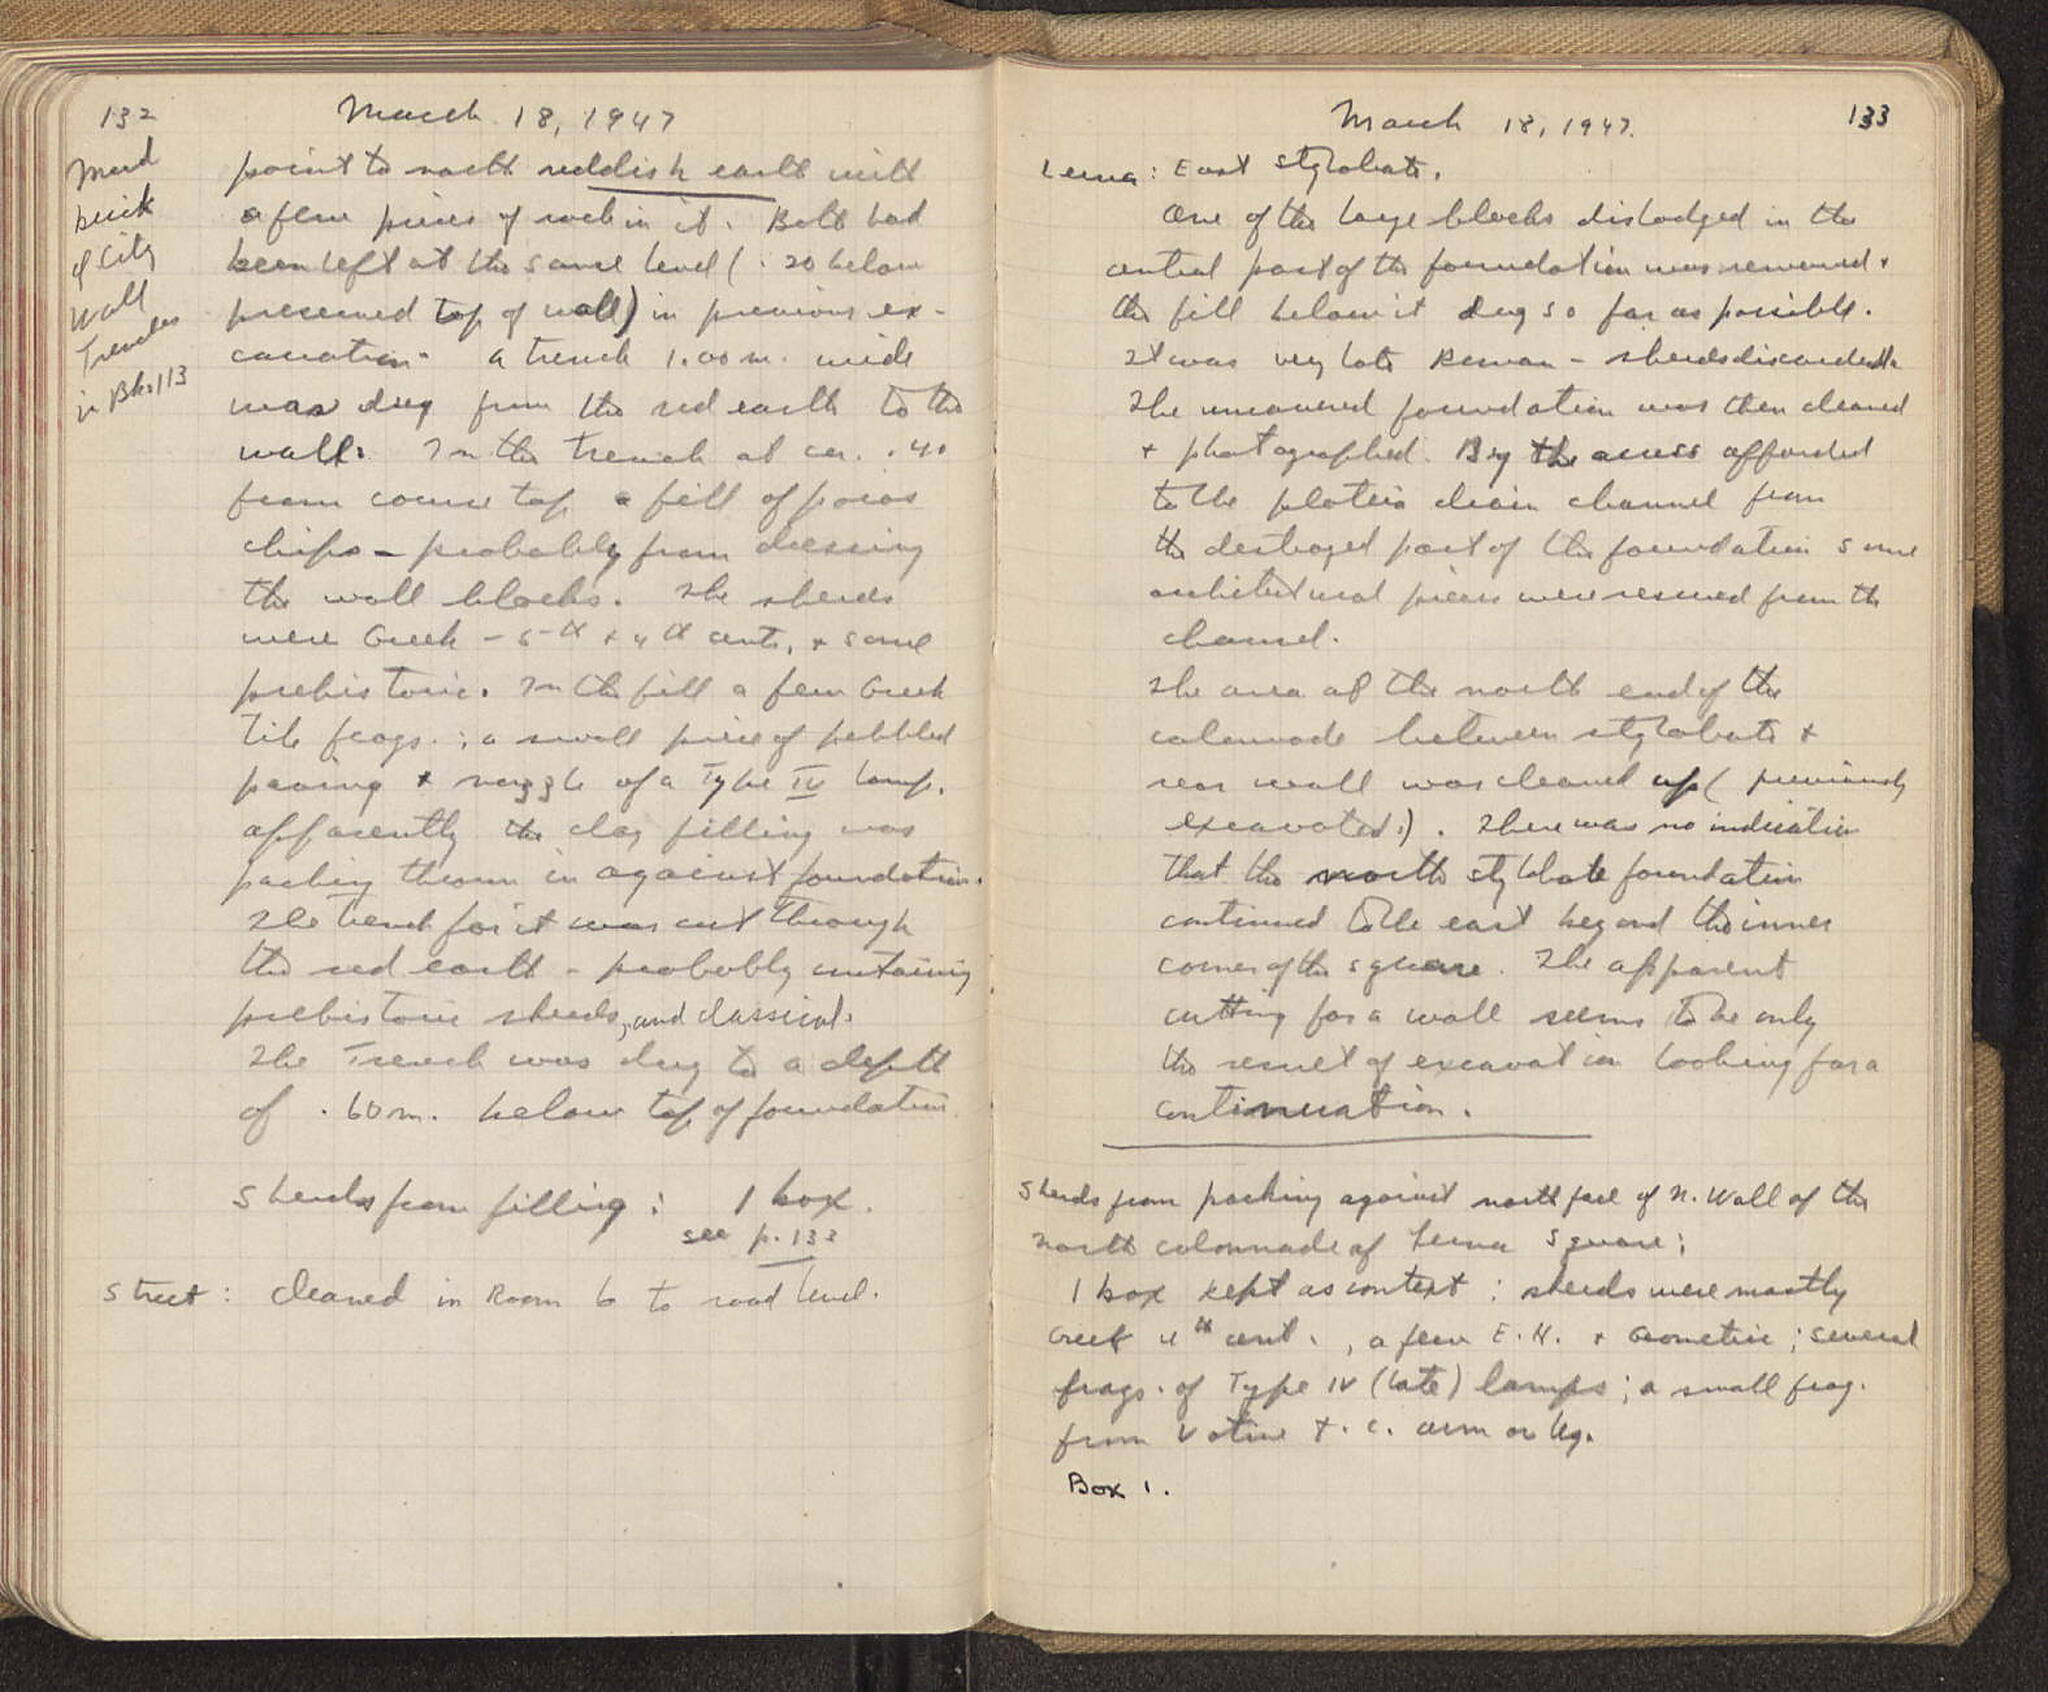 132
March 18, 1947
Mud
brick
of City
Wall
Trenches
in Bk. 113
point to north reddish earth with
a few pieces of rock in it. Both had
been left at the same level (.20 below
preserved top of wall) in previous ex-
cavation. A trench 1.00 m. wide
was dug from the red earth to the
wall. In the trench at ca. .40
from course top a fill of poros
chips - probably from dressing
the wall blocks. The sherds
were Greek - 5th + 4th cents, + some
prehistoric. In the fill a few Greek
tile frags.; a small piece of pebbled
paving + nozzle of a Type IV lamp.
Apparently the clay filling was
packing thrown in against foundation.
The trench for it was cut through
the red earth - probably containing
prehistoric sherds, and classical.
The trench was dug to a depth
of .60 m. below top of foundation
Sherds from filling: 1 box.
see p. 133
Street: Cleaned in Room 6 to road level.
March 18, 1947.
133
Lerna: East stylobate.
One of the large blocks dislodged in the
central part of the foundation was removed +
the fill below it dug so far as possible.
It was very late Roman - sherds discarded.
The uncovered foundation was then cleaned
+ photographed. By the access afforded
to the plateia drain channel from
the destroyed part of the foundation some
architectural pieces were rescued from the
channel.
The area at the north end of the
colonnade between stylobate +
rear wall was cleaned up (previously
excavated.). There was no indication
that the north stylobate foundation
continued to the east beyond the inner
corner of the square. The apparent
cutting for a wall seems to be only
the result of excavation looking for a
continuation.
Sherds from packing against north face of N. Wall of the
North colonnade of Lerna Square;
1 box kept as context: sherds were mostly
Greek 4th cent., a few E.H. + Geometric; several
frags. of Type IV (late) lamps; a small frag.
from votive t.c. arm or leg.
Box 1.